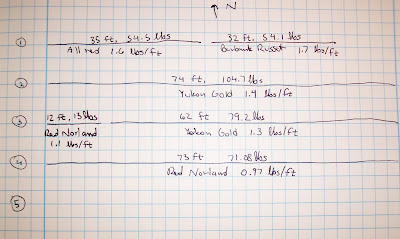 ↑ N
① 35 ft, 54.5 lbs 32 ft, 54.1 lbs
All red 1.6 lbs/ft Burbank Russet 1.7 lbs/ft
② 74 ft, 104.7 lbs
Yukon Gold 1.4 lbs/ft
③ 12 ft, 13 lbs 62 ft 79.2 lbs
Red Norland Yukon Gold 1.3 lbs/ft
1.1 lbs/ft
④ 73 ft 71.08 lbs
Red Norland 0.97 lbs/ft
⑤